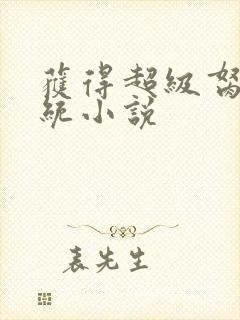 獲得超級努
統小說
表先生